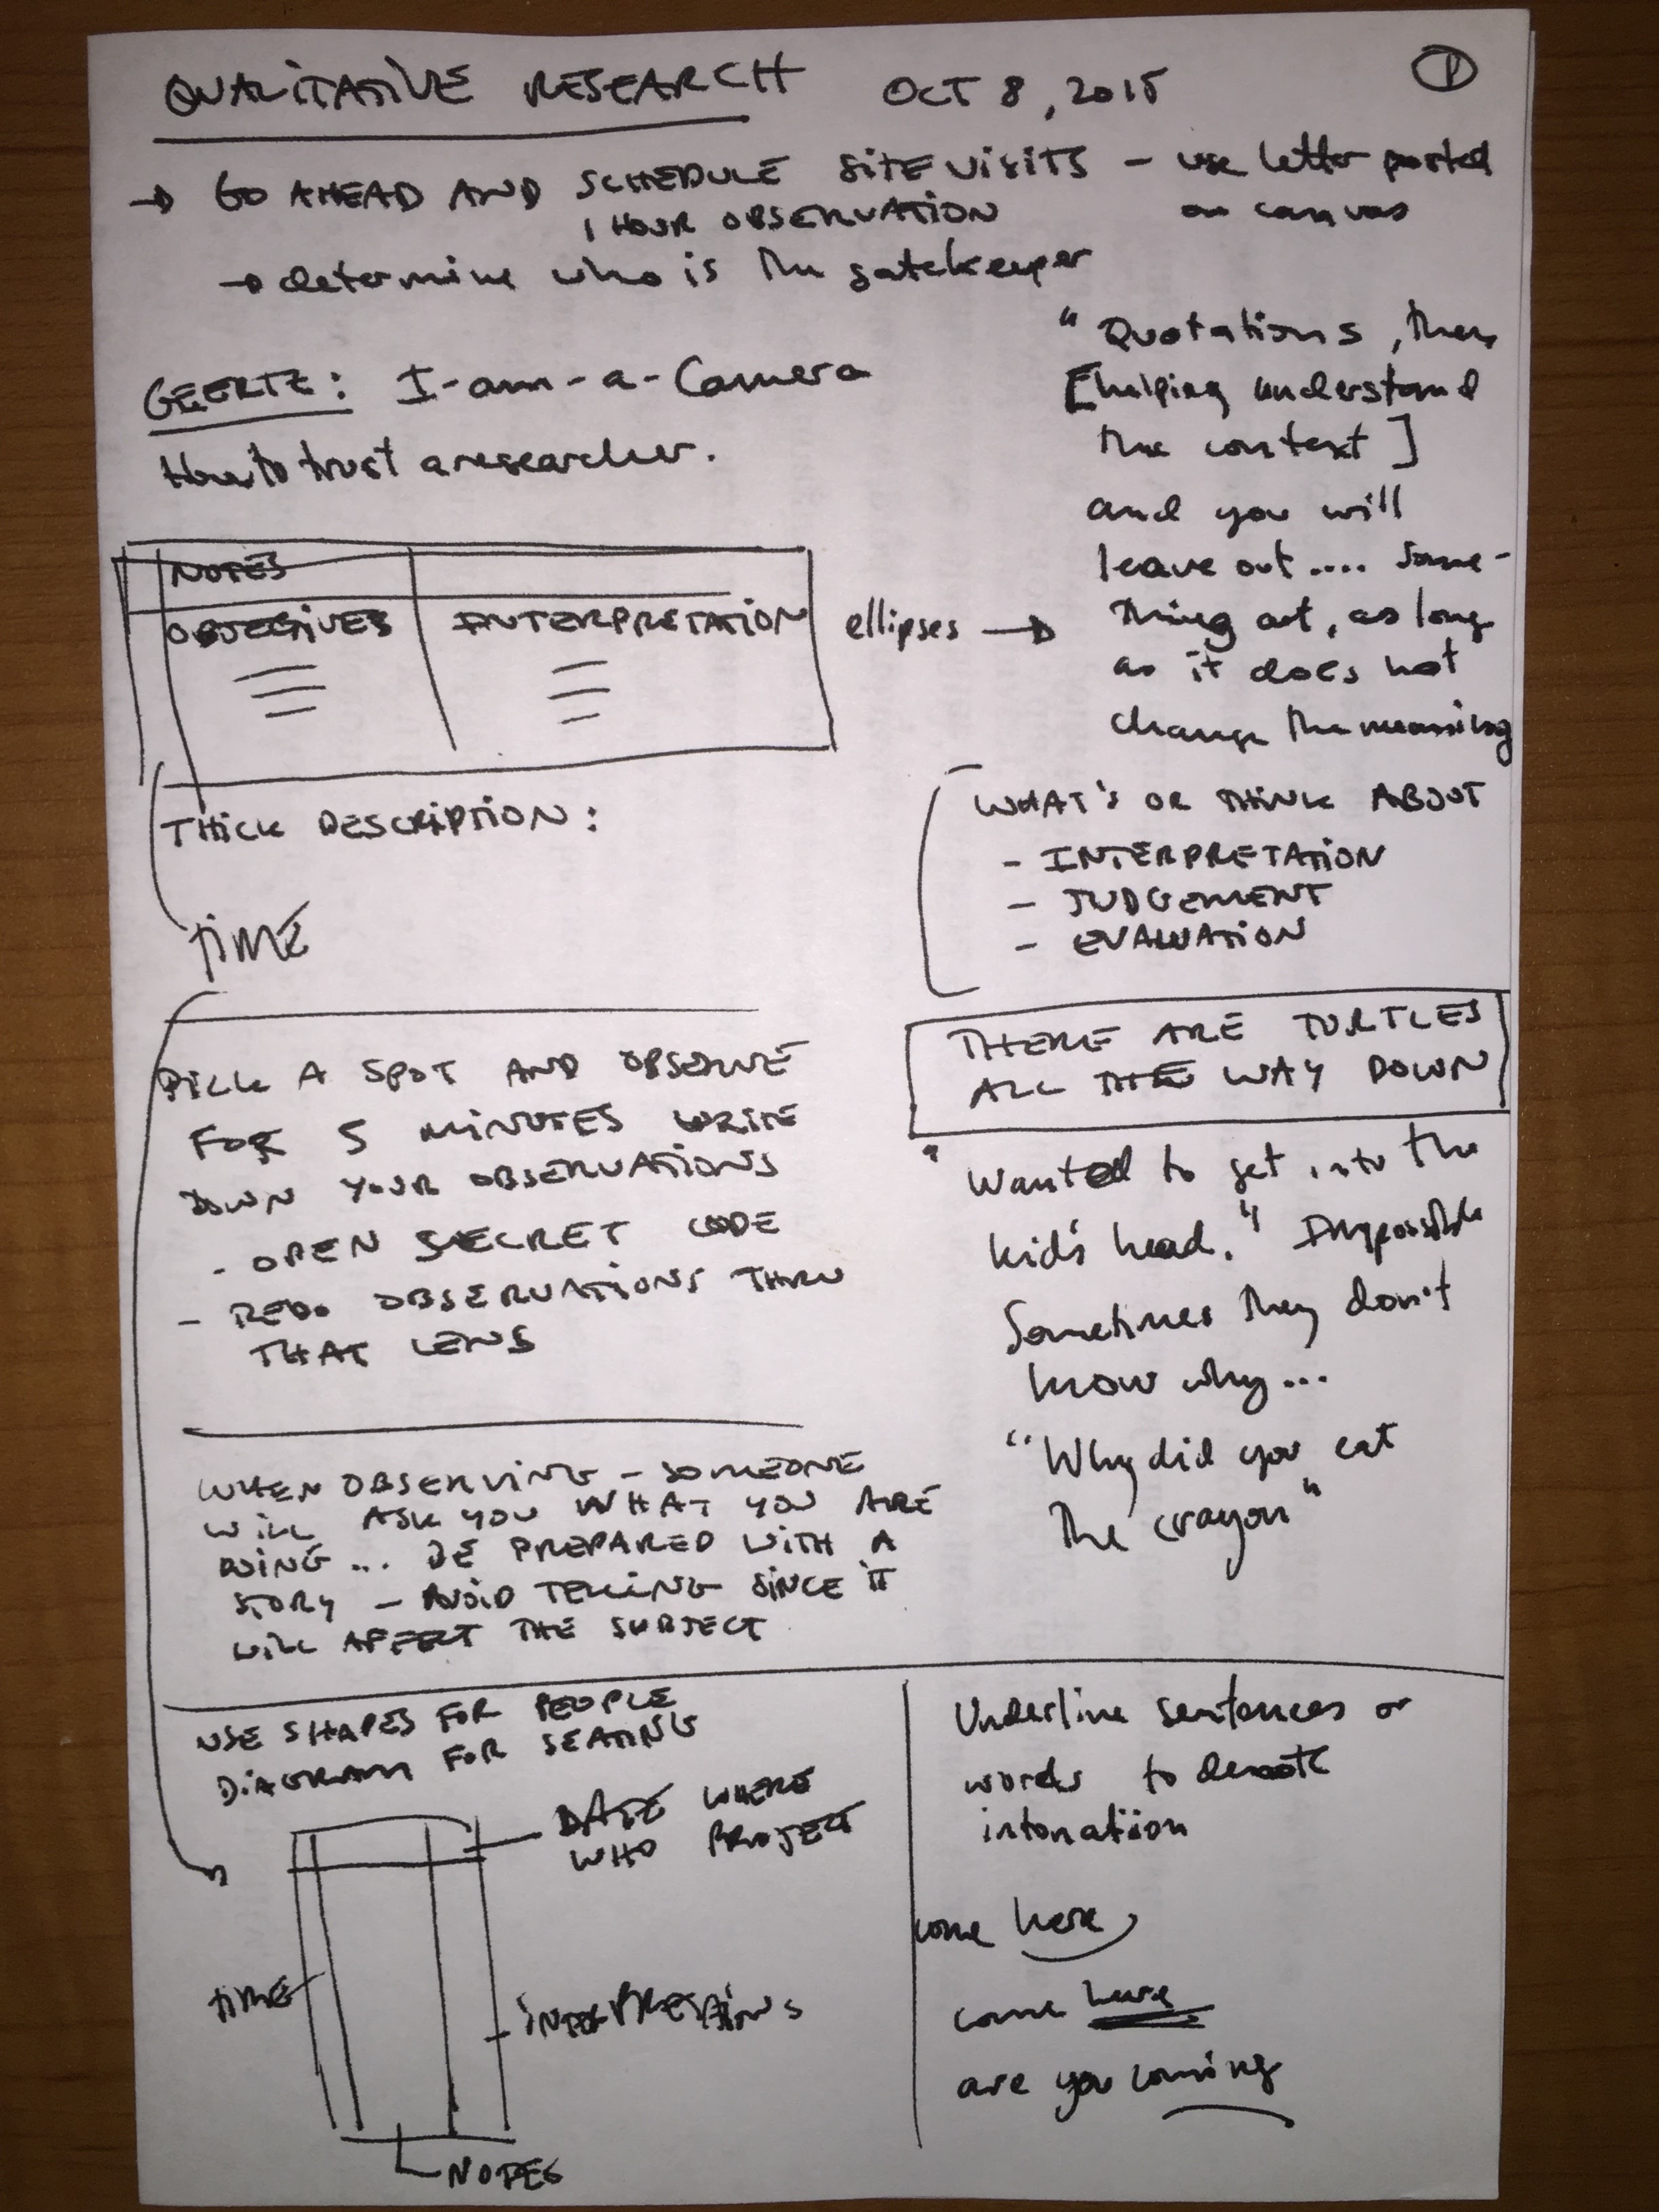 QUALITATIVE RESEARCH OCT 8, 2015 1
→ GO AHEAD AND SCHEDULE SITE VISITS – use letter posted
1 HOUR OBSERVATION on canvas
→ determine who is the gatekeeper
GEERTZ: I-am-a-Camera
How to trust a researcher.
" Quotations, then
[helping understand
the context]
and you will
leave out .... some-
thing out, as long
as it does not
change the meaning
ellipses →
NOTES
OBJECTIVES INTERPRETATION
THICK DESCRIPTION:
TIME
WHAT'S OR THINK ABOUT
- INTERPRETATION
- JUDGEMENT
- EVALUATION
THERE ARE TURTLES
ALL THE WAY DOWN
PICK A SPOT AND OBSERVE
FOR 5 MINUTES WRITE
DOWN YOUR OBSERVATIONS
- OPEN SECRET CODE
- REDO OBSERVATIONS THRU
THAT LENS
" Wanted to get into the
kid's head." Impossible
Sometimes they don't
know why...
"Why did you eat
the crayon"
WHEN OBSERVING – SOMEONE
WILL ASK YOU WHAT YOU ARE
DOING ... BE PREPARED WITH A
STORY – AVOID TELLING SINCE IT
WILL AFFECT THE SUBJECT
USE SHAPES FOR PEOPLE
DIAGRAM FOR SEATING
DATE WHERE
WHO PROJECT
TIME
INTERPRETATIONS
NOTES
Underline sentences or
words to denote
intonation
come here
come here
are you coming